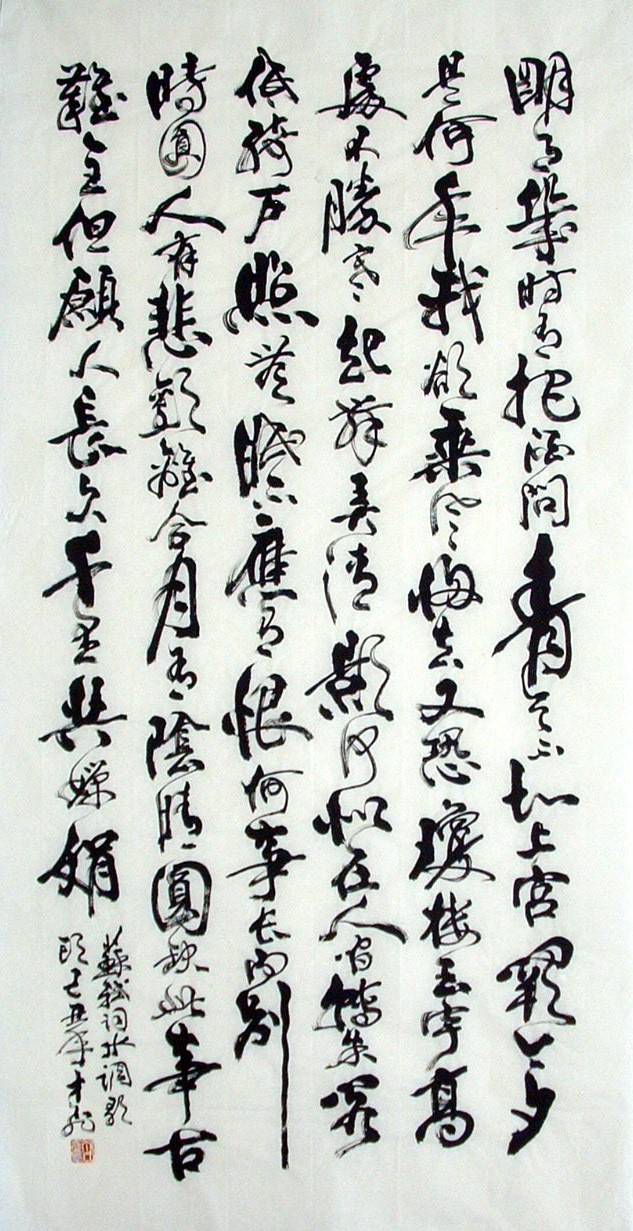 明月幾時有把酒問青天不知上宮闕今夕
是何年我欲乘風歸去又恐瓊樓玉宇高
處不勝寒起舞弄清影何似在人間轉朱閣
低綺戶照無眠不應有恨何事長向別
時圓人有悲歡離合月有陰晴圓缺此事古
難全但願人長久千里與嬋娟
蘇軾詞水調歌
頭己丑年才